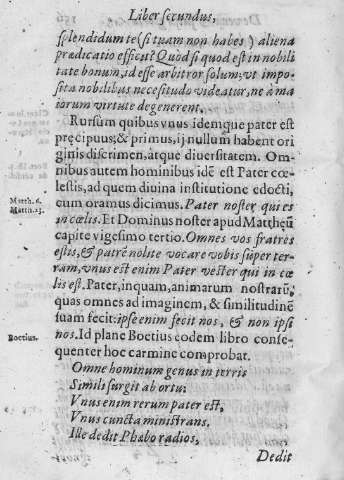 Liber secundus,
splendidum te (si tuam non habes) aliena
prædicatio efficit? Quòd si quod est in nobili
tate bonum, id esse arbitror solum, vt impo-
sita nobilibus necesitudo videatur, ne à ma
iorum virtute degenerent.
Rursum quibus vnus idemque pater est
pręcipuus, & primus, ij nullum habent ori
ginis discrimen, atque diuersitatem. Om-
nibus autem hominibus idē est Pater cœ-
lestis, ad quem diuina institutione edocti,
cum oramus dicimus. Pater noster qui es
in cœlis. Et Dominus noster apud Matthęū
capite vigesimo tertio. Omnes vos fratres
estis, & patrē nolite vocare vobis super ter-
ram, vnus est enim Pater vester qui in cœ
lis est. Pater, inquam, animarum nostrarū,
quas omnes ad imaginem, & similitudinē
suam fecit: ipse enim fecit nos, & non ipsi
nos. Id plane Boetius eodem libro conse-
quenter hoc carmine comprobat.
Omne hominum genus in terris
Simili surgit ab ortu:
Vnus enim rerum pater est,
Vnus cuncta ministrans.
Ille dedit Phœbo radios,
Dedit
Matth. 6.
Matth. 23.
Boetius.